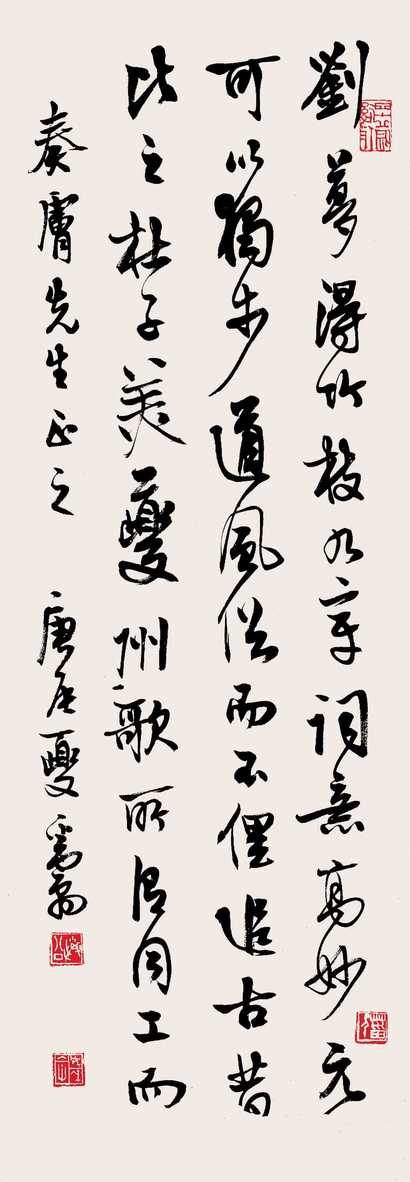 劉夢得竹枝九章詞意高妙元
可以獨步道風俗而不俚追古昔
比之杜子美夔州歌所謂同工而
奏膚先生正之 庚辰夏